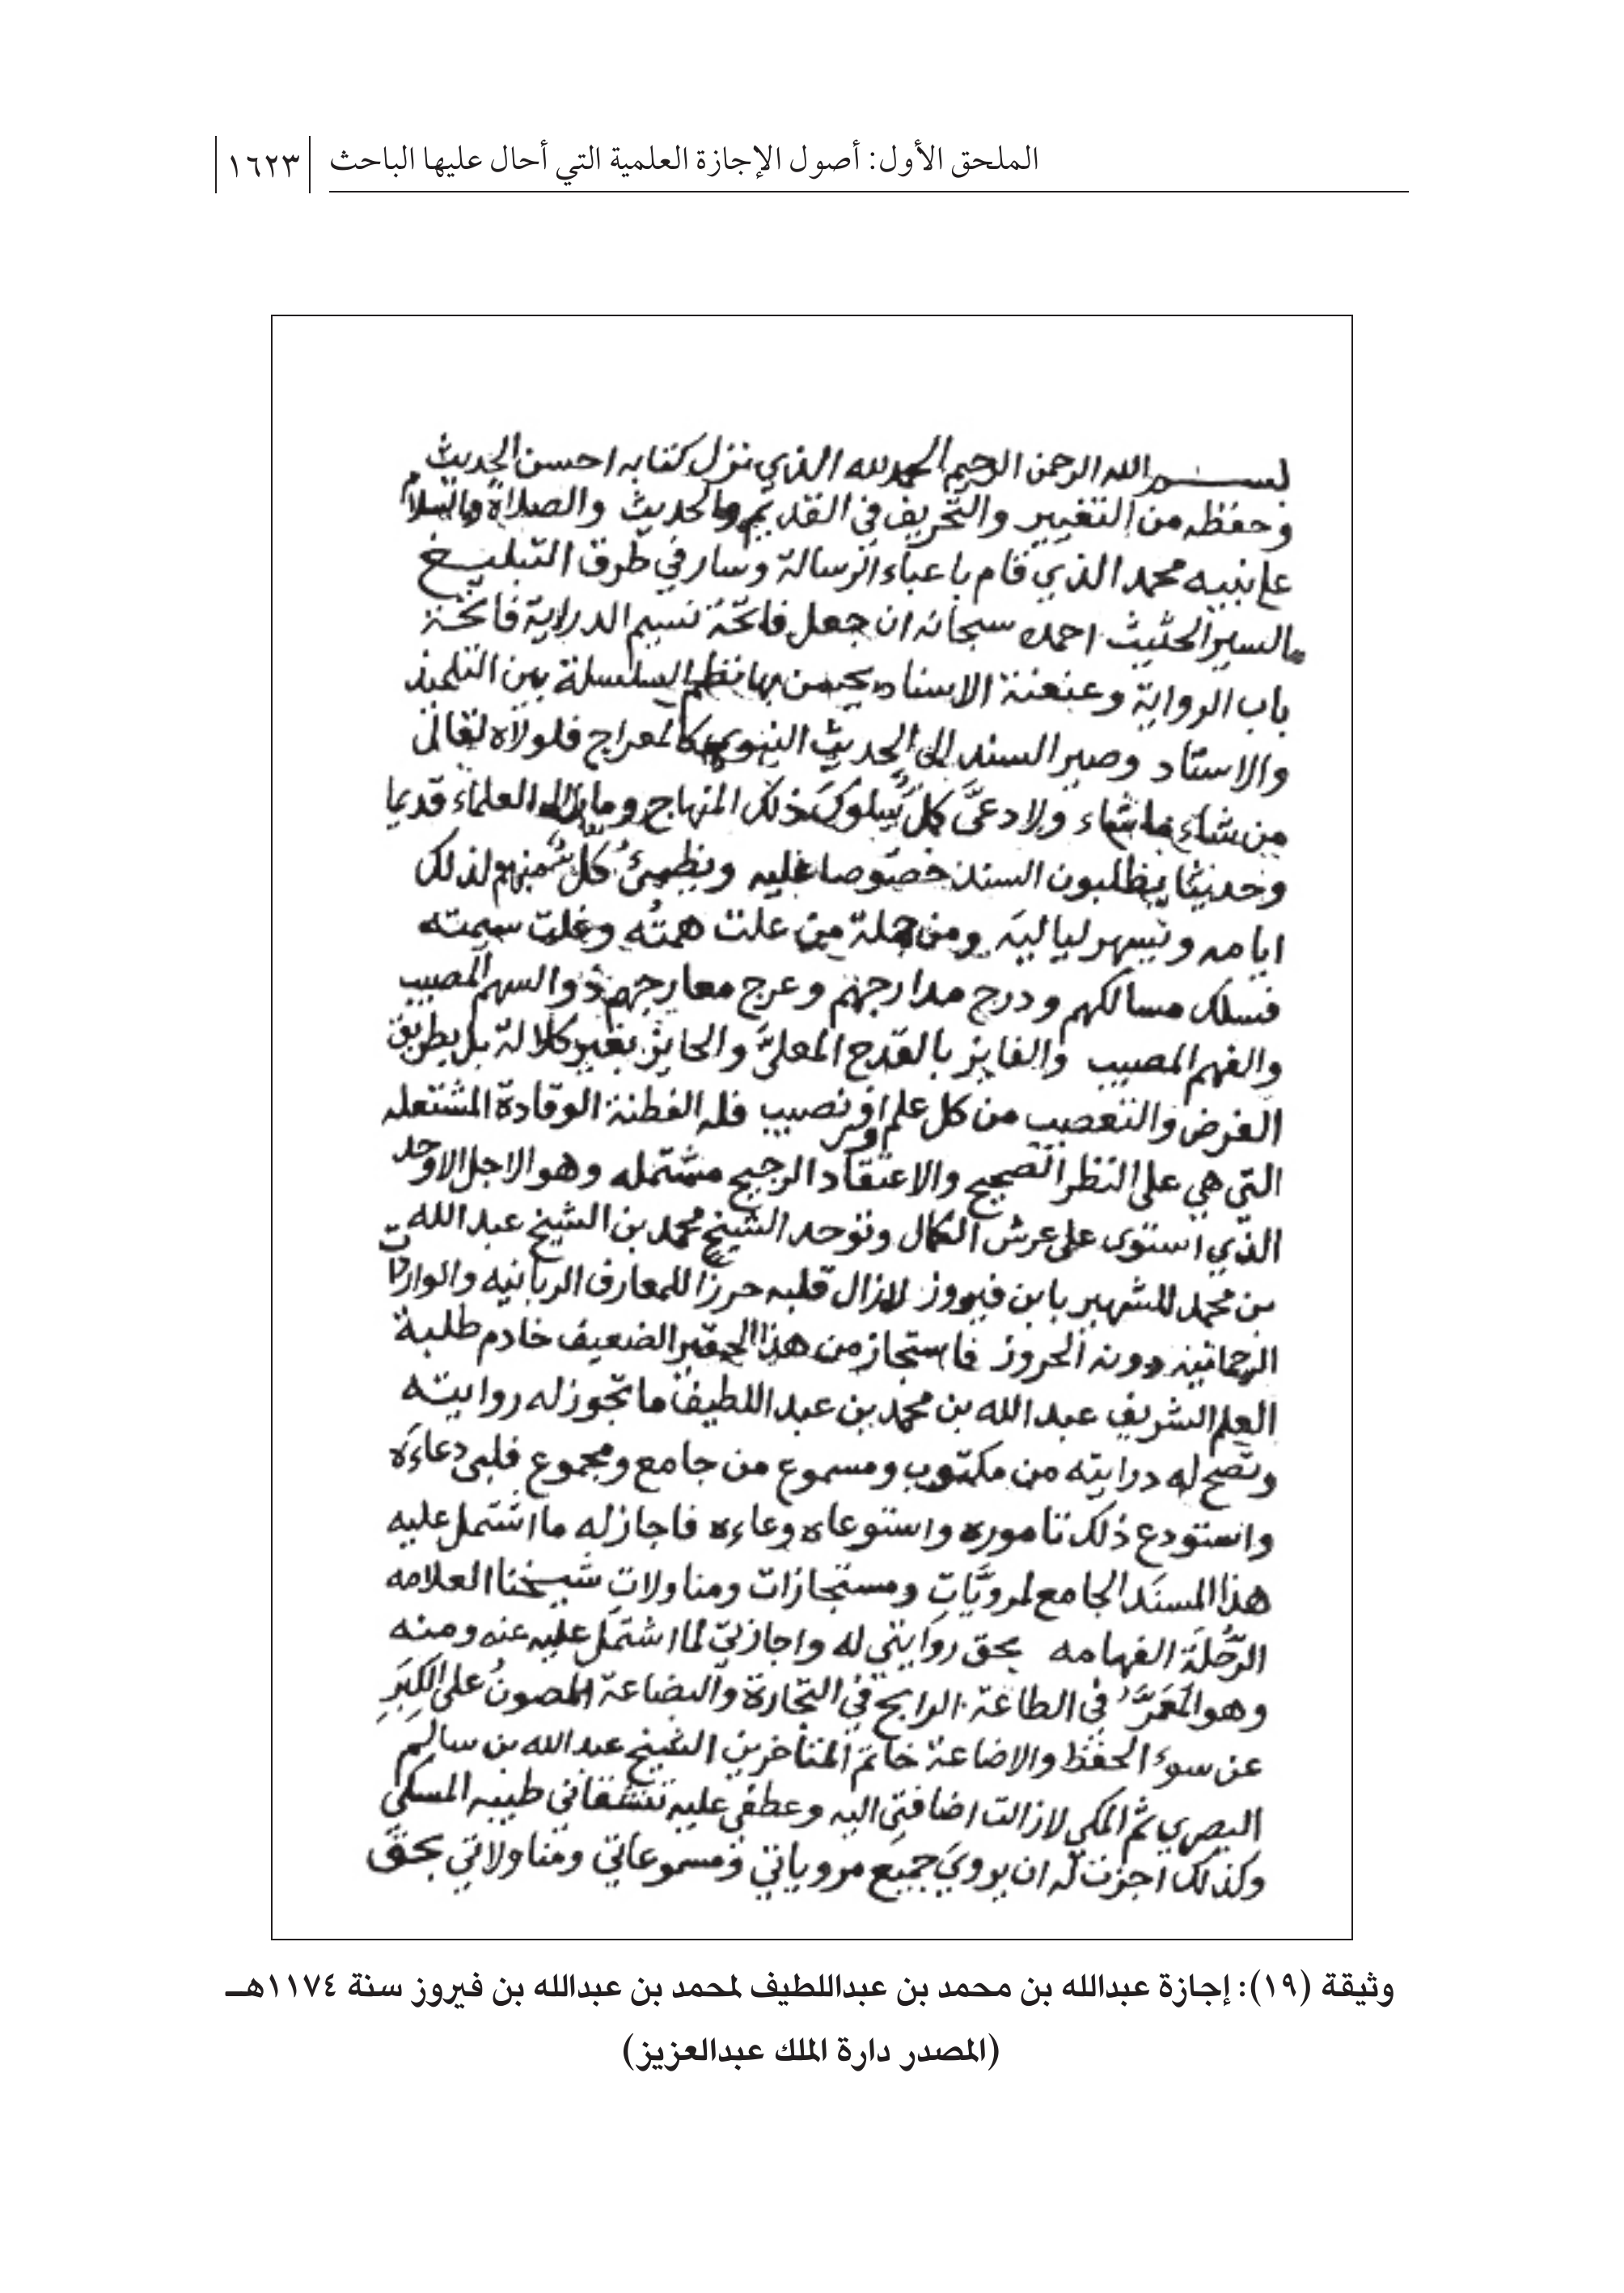 الملحق الأول: أصول الإجازة العلمية التي أحال عليها الباحث ١٦٢٣
بسم الله الرحمن الرحيم الحمد لله الذي نزل كتابه احسن الحديث
وحفظه من التغيير والتحريف في القديم والحديث والصلاة والسلام
على نبيه محمد الذي قام باعباء الرسالة وسار في طرق التبليغ
بالسير الحثيث احمده سبحانه ان جعل فاتحة نسيم الدراية فاتحة
باب الرواية وعنعنة الاسناد يحسن بها نظم السلسلة بين التلميذ
والاستاد وصير السند الى الحديث النبوي كالمعراج فلولاه لقال
من شاء ما شاء ولادعى كل سلوك ذلك المنهاج وما زال العلماء قديما
وحديثا يطلبون السند خصوصا عليه ويظمئ كل منهم لذلك
ايامه ويسهر لياليه ومن جملة من علت همته وغلت سيمته
فسلك مسالكهم ودرج مدارجهم وعرج معارجهم ذو السهم المصيب
والفهم المصيب والفايز بالقدح المعلى والحايز بغير كلالة بل بطريق
الفرض والتعصيب من كل علم اوفر نصيب فله الفطنة الوقادة المشتعله
التي هي على النظر الصحيح والاعتقاد الرجيح مشتمله وهو الاجل الاوحد
الذي استوى على عرش الكمال وتوحد الشيخ محمد بن الشيخ عبد الله
بن محمد الشهير بابن فيروز لازال قلبه حرزا للمعارف الربانيه والواردات
الرحمانيه دونه الحروز فاستجاز من هذا الحقير الضعيف خادم طلبة
العلم الشريف عبد الله بن محمد بن عبد اللطيف ما تجوز له روايته
وتصح له درايته من مكتوب ومسموع من جامع ومجموع فلبى دعاءه
واستودع ذلك تاموره واستوعاه وعاءه فاجاز له ما اشتمل عليه
هذا المسند الجامع لمرويات ومستجازات ومناولات شيخنا العلامه
الرحلة الفهامه بحق روايتي له واجازتي لما اشتمل عليه عنه ومنه
وهو المعمر في الطاعة الرابح في التجارة والبضاعة المصون على الكبر
عن سوء الحفظ والاضاعة خاتم المتأخرين الشيخ عبد الله بن سالم
البصري ثم المكي لازالت اضافتي اليه وعطفي عليه طيبه المسكي
وكذلك اجزت له ان يروي جميع مروياتي ومسموعاتي ومناولاتي بحق
وثيقة (١٩): إجازة عبدالله بن محمد بن عبداللطيف لمحمد بن عبدالله بن فيروز سنة ١١٧٤هـ
(المصدر دارة الملك عبدالعزيز)